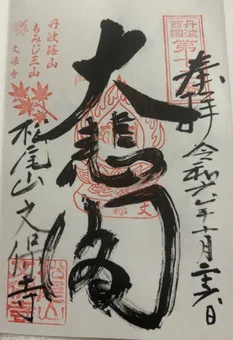 丹波
西国
第十
奉拝
令和六年十月二六日
大悲閣
丹波篠山
もみじ三山
文保寺
松尾山文保寺